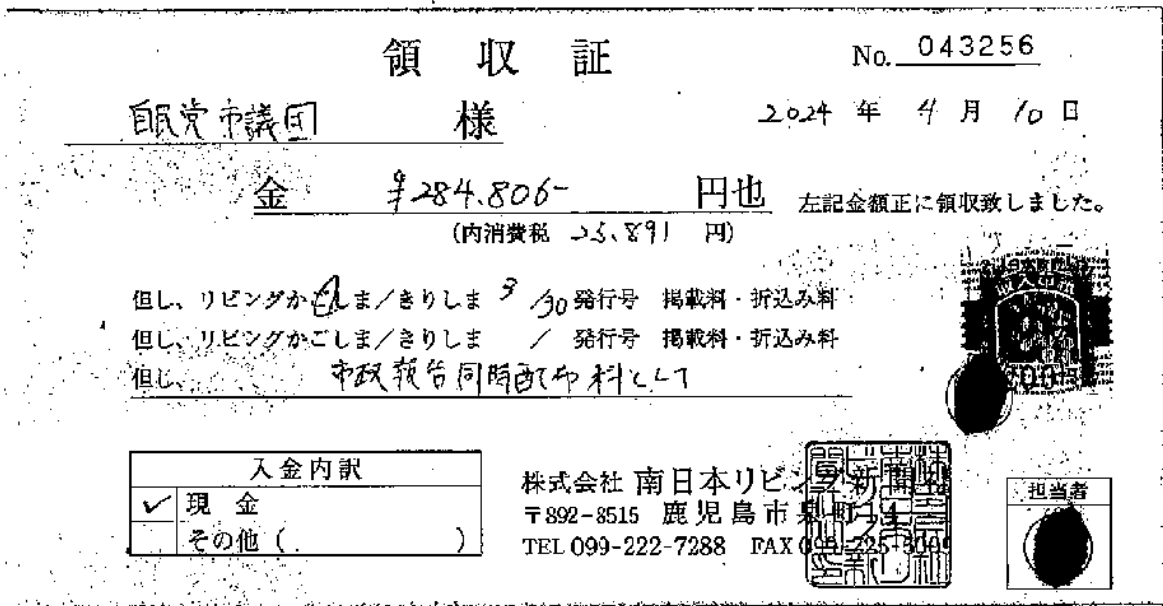 領収証
No. 043256
自民党市議団 様
2024 年 4 月 10 日
金 ¥284.806- 円也
左記金額正に領収致しました。
(内消費税 25,891 円)
但し、リビングかごしま/きりしま 3/30 発行号 掲載料・折込み料
但し、リビングかごしま/きりしま / 発行号 掲載料・折込み料
但し、 市政報告同時配布料として
入金内訳
✓ 現金
その他 ( )
株式会社 南日本リビング新聞社
〒892-8515 鹿児島市泉町
TEL 099-222-7288 FAX
担当者